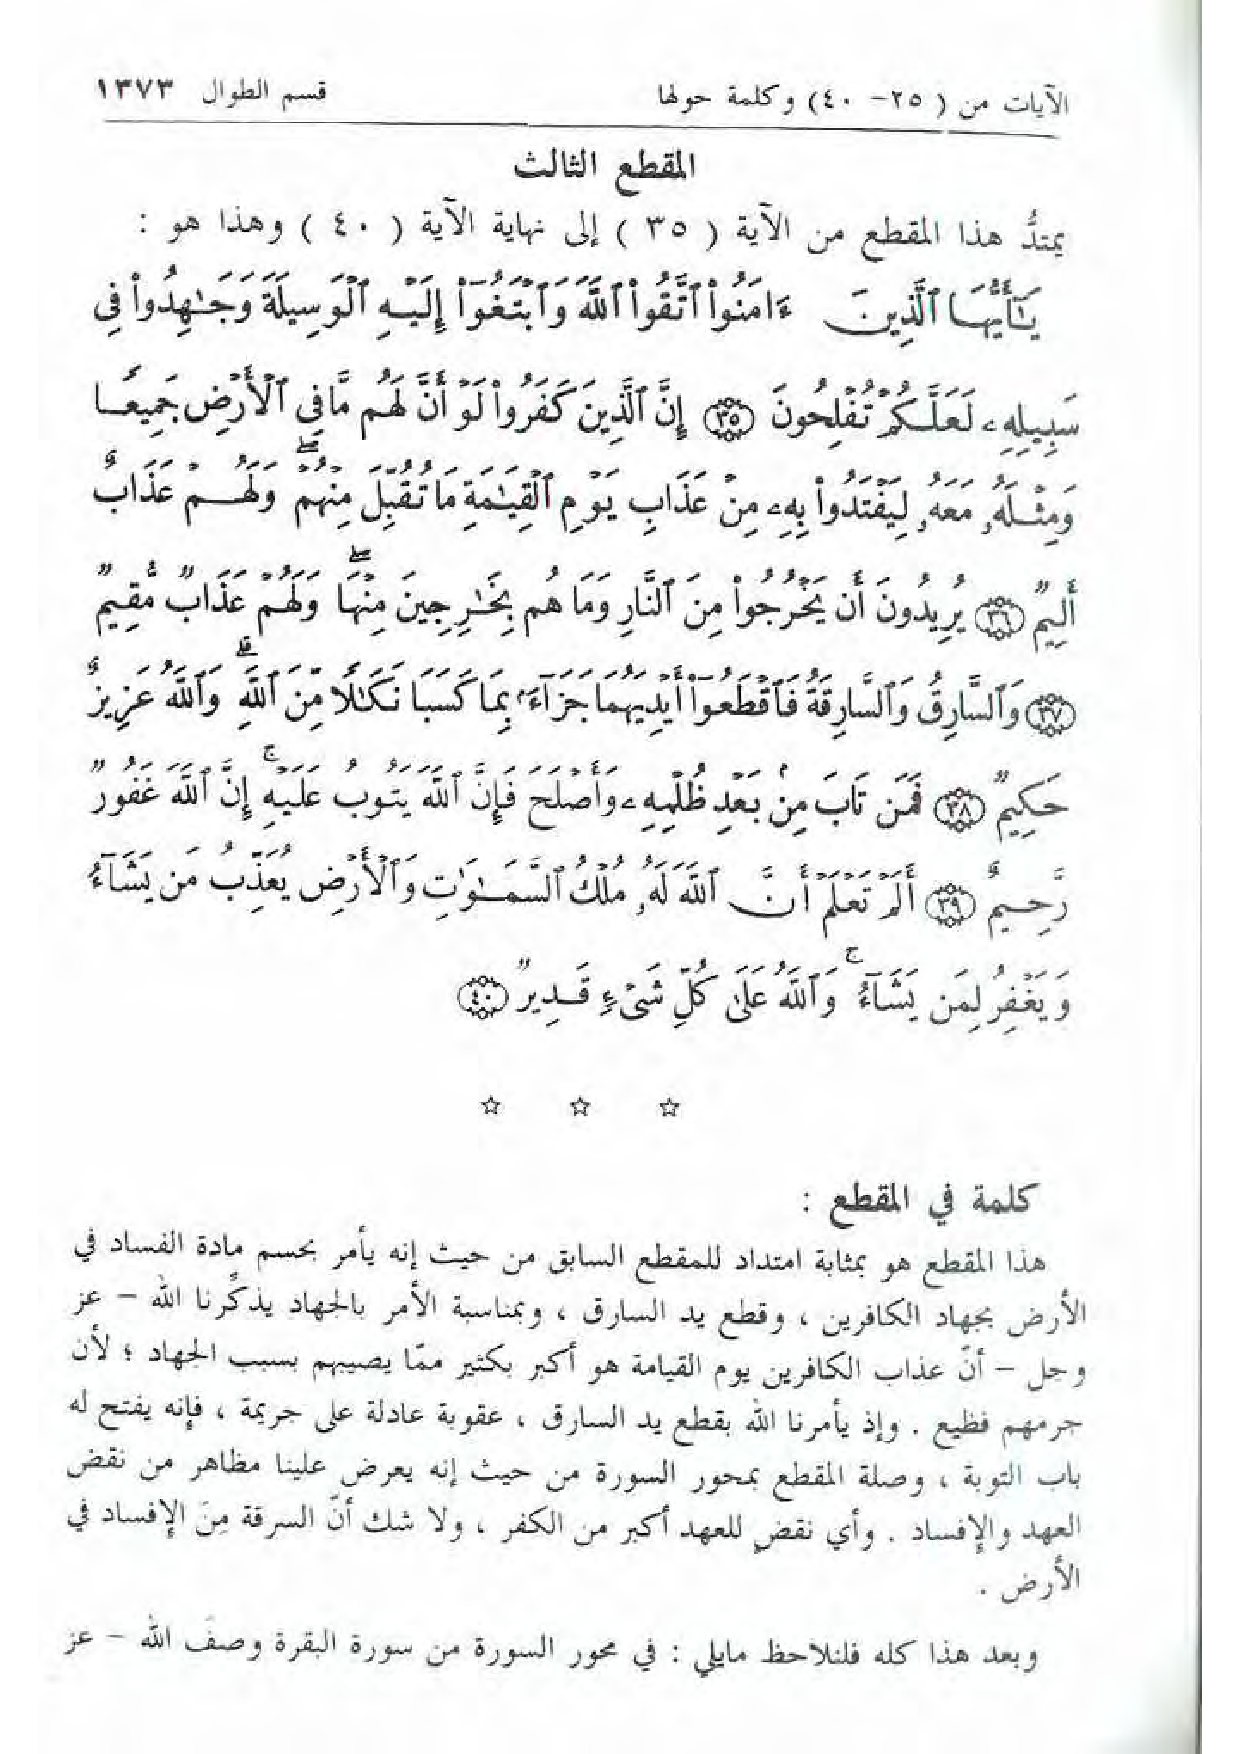 الآيات من ( ٢٥- ٤٠) وكلمة حولها قسم الطوال ١٣٧٣
المقطع الثالث
يمتدُّ هذا المقطع من الآية ( ٣٥ ) إلى نهاية الآية ( ٤٠ ) وهذا هو :
يَٰٓأَيُّهَا ٱلَّذِينَ ءَامَنُوا۟ ٱتَّقُوا۟ ٱللَّهَ وَٱبْتَغُوٓا۟ إِلَيْهِ ٱلْوَسِيلَةَ وَجَٰهِدُوا۟ فِى
سَبِيلِهِۦ لَعَلَّكُمْ تُفْلِحُونَ ۝٣٥ إِنَّ ٱلَّذِينَ كَفَرُوا۟ لَوْ أَنَّ لَهُم مَّا فِى ٱلْأَرْضِ جَمِيعًا
وَمِثْلَهُۥ مَعَهُۥ لِيَفْتَدُوا۟ بِهِۦ مِنْ عَذَابِ يَوْمِ ٱلْقِيَٰمَةِ مَا تُقُبِّلَ مِنْهُمْ ۖ وَلَهُمْ عَذَابٌ
أَلِيمٌ ۝٣٦ يُرِيدُونَ أَن يَخْرُجُوا۟ مِنَ ٱلنَّارِ وَمَا هُم بِخَٰرِجِينَ مِنْهَا ۖ وَلَهُمْ عَذَابٌ مُّقِيمٌ
۝٣٧ وَٱلسَّارِقُ وَٱلسَّارِقَةُ فَٱقْطَعُوٓا۟ أَيْدِيَهُمَا جَزَآءًۢ بِمَا كَسَبَا نَكَٰلًا مِّنَ ٱللَّهِ ۗ وَٱللَّهُ عَزِيزٌ
حَكِيمٌ ۝٣٨ فَمَن تَابَ مِنۢ بَعْدِ ظُلْمِهِۦ وَأَصْلَحَ فَإِنَّ ٱللَّهَ يَتُوبُ عَلَيْهِ ۚ إِنَّ ٱللَّهَ غَفُورٌ
رَّحِيمٌ ۝٣٩ أَلَمْ تَعْلَمْ أَنَّ ٱللَّهَ لَهُۥ مُلْكُ ٱلسَّمَٰوَٰتِ وَٱلْأَرْضِ يُعَذِّبُ مَن يَشَآءُ
وَيَغْفِرُ لِمَن يَشَآءُ ۚ وَٱللَّهُ عَلَىٰ كُلِّ شَىْءٍ قَدِيرٌ ۝٤٠
☆ ☆ ☆
كلمة في المقطع :
هذا المقطع هو بمثابة امتداد للمقطع السابق من حيث إنه يأمر بحسم مادة الفساد في
الأرض بجهاد الكافرين ، وقطع يد السارق ، وبمناسبة الأمر بالجهاد يذكِّرنا الله – عز
وجل – أنّ عذاب الكافرين يوم القيامة هو أكبر بكثير ممّا يصيبهم بسبب الجهاد ؛ لأن
جرمهم فظيع . وإذ يأمرنا الله بقطع يد السارق ، عقوبة عادلة على جريمة ، فإنه يفتح له
باب التوبة ، وصلة المقطع بمحور السورة من حيث إنه يعرض علينا مظاهر من نقض
العهد والإفساد . وأي نقضٍ للعهد أكبر من الكفر ، ولا شك أنّ السرقة مِنَ الإفساد في
الأرض .
وبعد هذا كله فلنلاحظ مايلي : في محور السورة من سورة البقرة وصفَ الله – عز